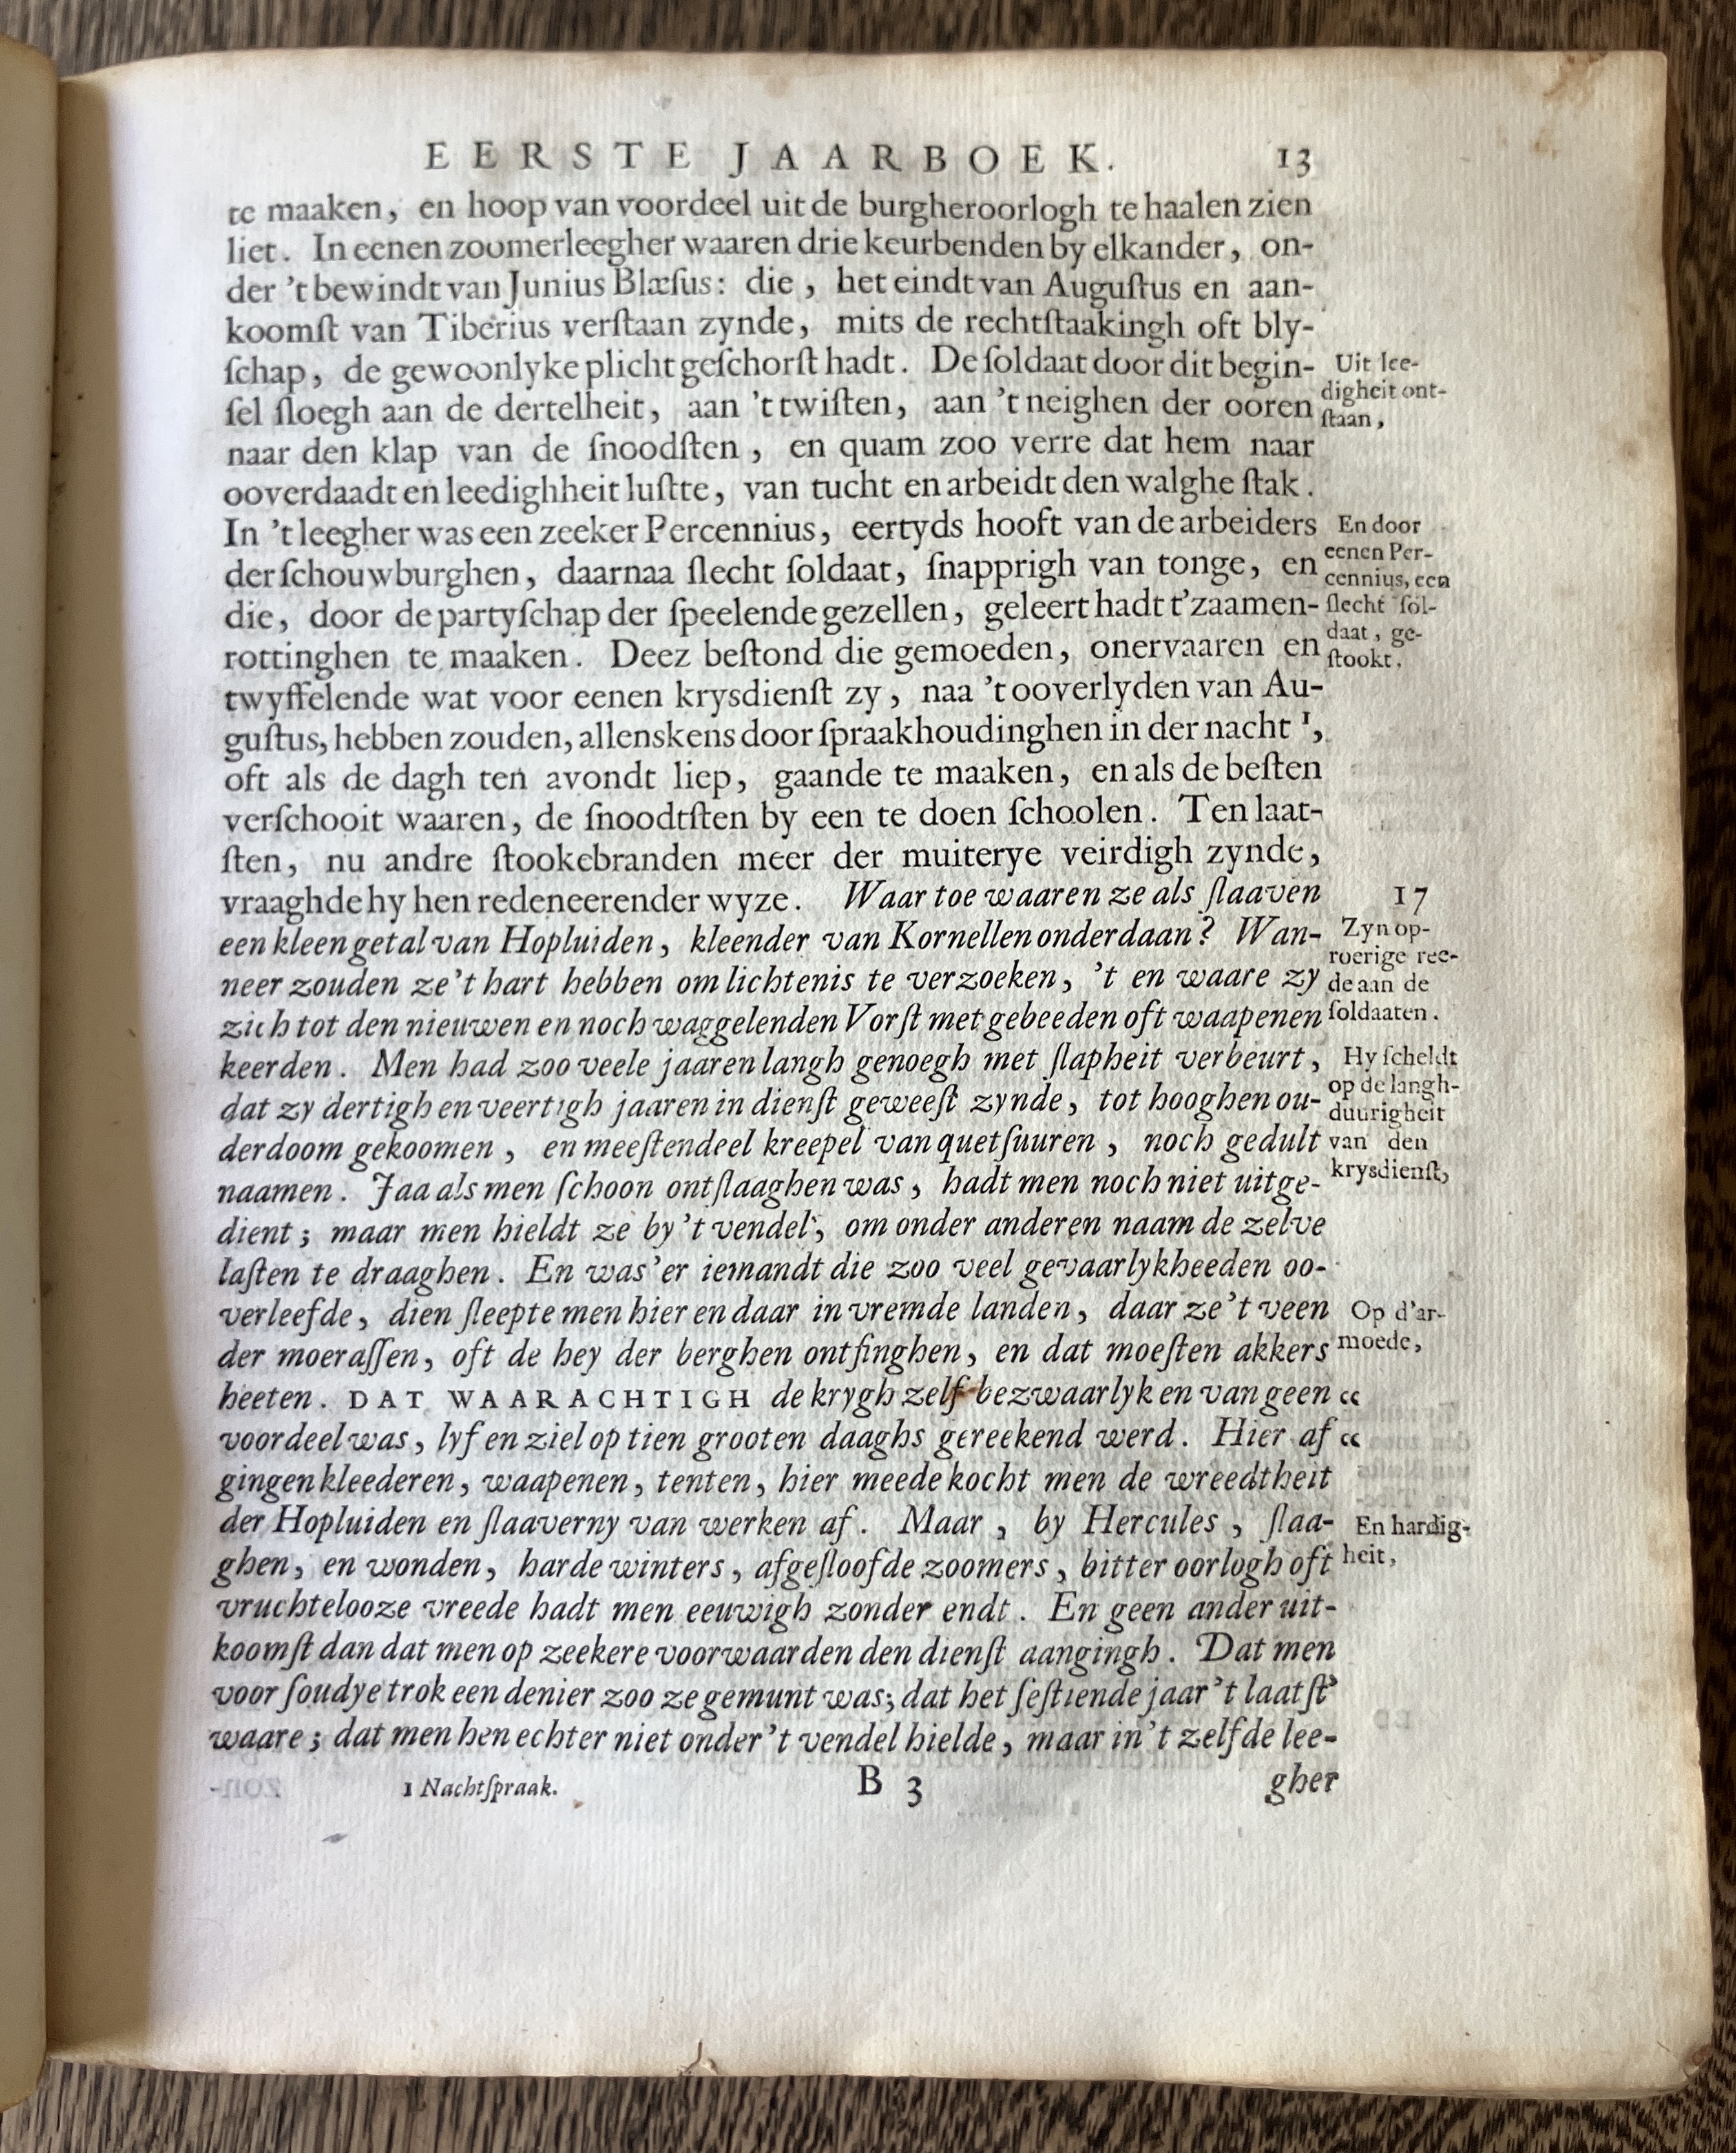 EERSTE JAARBOEK. 13
te maaken, en hoop van voordeel uit de burgheroorlogh te haalen zien
liet. In eenen zoomerleegher waaren drie keurbenden by elkander, on-
der 't bewindt van Junius Blæſus: die, het eindt van Auguſtus en aan-
koomſt van Tiberius verſtaan zynde, mits de rechtſtaakingh oft bly-
ſchap, de gewoonlyke plicht geſchorſt hadt. De ſoldaat door dit begin-
ſel ſloegh aan de dertelheit, aan 't twiſten, aan 't neighen der ooren
naar den klap van de ſnoodſten, en quam zoo verre dat hem naar
ooverdaadt en leedighheit luſtte, van tucht en arbeidt den walghe ſtak.
In 't leegher was een zeeker Percennius, eertyds hooft van de arbeiders
der ſchouwburghen, daarnaa ſlecht ſoldaat, ſnapprigh van tonge, en
die, door de partyſchap der ſpeelende gezellen, geleert hadt t'zaamen-
rottinghen te maaken. Deez beſtond die gemoeden, onervaaren en
twyffelende wat voor eenen krysdienſt zy, naa 't ooverlyden van Au-
guſtus, hebben zouden, allenskens door ſpraakhoudinghen in der nacht ¹,
oft als de dagh ten avondt liep, gaande te maaken, en als de beſten
verſchooit waaren, de ſnoodtſten by een te doen ſchoolen. Ten laat-
ſten, nu andre ſtookebranden meer der muiterye veirdigh zynde,
vraaghde hy hen redeneerender wyze. Waar toe waaren ze als ſlaaven
een kleen getal van Hopluiden, kleender van Kornellen onderdaan? Wan-
neer zouden ze 't hart hebben om lichtenis te verzoeken, 't en waare zy
zich tot den nieuwen en noch waggelenden Vorſt met gebeeden oft waapenen
keerden. Men had zoo veele jaaren langh genoegh met ſlapheit verbeurt,
dat zy dertigh en veertigh jaaren in dienſt geweeſt zynde, tot hooghen ou-
derdoom gekoomen, en meeſtendeel kreepel van quetſuuren, noch gedult
naamen. Jaa als men ſchoon ontſlaaghen was, hadt men noch niet uitge-
dient; maar men hieldt ze by 't vendel, om onder anderen naam de zelve
laſten te draaghen. En was'er iemandt die zoo veel gevaarlykheeden oo-
verleefde, dien ſleepte men hier en daar in vremde landen, daar ze 't veen
der moeraſſen, oft de hey der berghen ontfinghen, en dat moeſten akkers
heeten. DAT WAARACHTIGH de krygh zelf bezwaarlyk en van geen “
voordeel was, lyf en ziel op tien grooten daaghs gereekend werd. Hier af “
gingen kleederen, waapenen, tenten, hier meede kocht men de wreedtheit
der Hopluiden en ſlaaverny van werken af. Maar, by Hercules, ſlaa-
ghen, en wonden, harde winters, afgeſloofde zoomers, bitter oorlogh oft
vruchtelooze vreede hadt men eeuwigh zonder endt. En geen ander uit-
koomſt dan dat men op zeekere voorwaarden den dienſt aangingh. Dat men
voor ſoudye trok een denier zoo ze gemunt was; dat het ſeſtiende jaar 't laatſt'
waare; dat men hen echter niet onder 't vendel hielde, maar in 't zelfde lee-
1 Nachtſpraak. B 3 gher
Uit lee-
digheit ont-
ſtaan,
En door
eenen Per-
cennius, een
ſlecht ſol-
daat, ge-
ſtookt.
17
Zyn op-
roerige ree-
de aan de
ſoldaaten.
Hy ſcheldt
op de langh-
duurigheit
van den
krysdienſt,
Op d'ar-
moede,
En hardig-
heit,